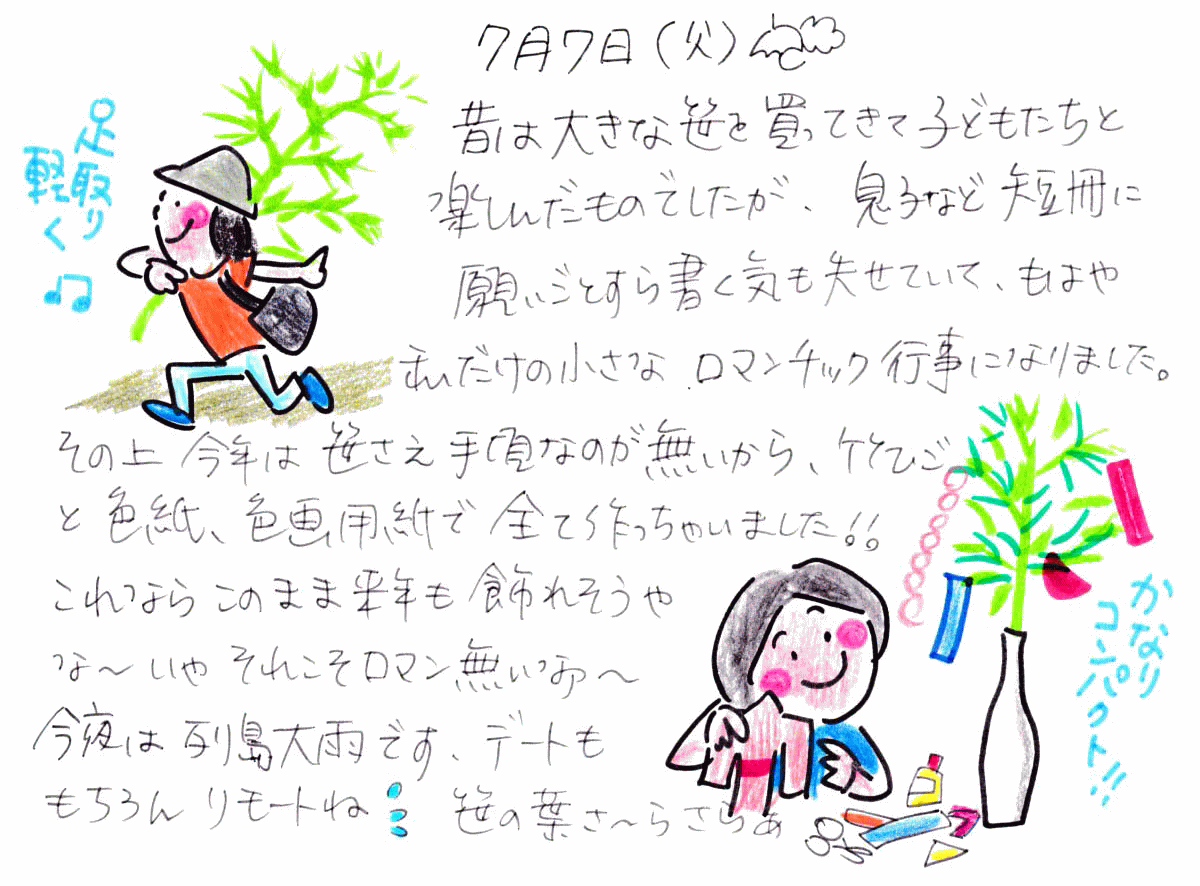 7月7日(火)
足取り
軽く♫
昔は大きな笹を買ってきて子どもたちと
楽しんだものでしたが、息子など短冊に
願いごとすら書く気も失せていて、もはや
私だけの小さなロマンチック行事になりました。
その上今年は笹さえ手頃なのが無いから、竹ひご
と色紙、色画用紙で全て作っちゃいました!!
これならこのまま来年も飾れそうや
な〜いやそれこそロマン無いなあ〜
今夜は列島大雨です、デートも
もちろんリモートね
笹の葉さ〜らさらぁ
かなり
コンパクト!!